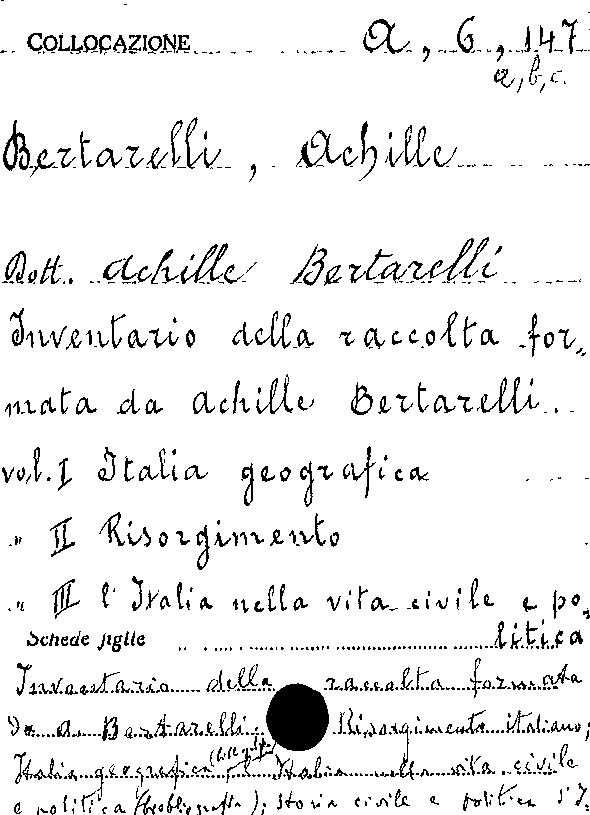 COLLOCAZIONE A, 6, 147
a, b, c.
Bertarelli, Achille
Dott. Achille Bertarelli
Inventario della raccolta for-
mata da Achille Bertarelli.
vol. I Italia geografica
" II Risorgimento
" III l'Italia nella vita civile e po-
Schede figlie litica
Inventario della raccolta formata
da A. Bertarelli. Risorgimento italiano;
Italia geografica; l'Italia nella vita civile
e politica (bibliografia); Storia civile e politica d'I-